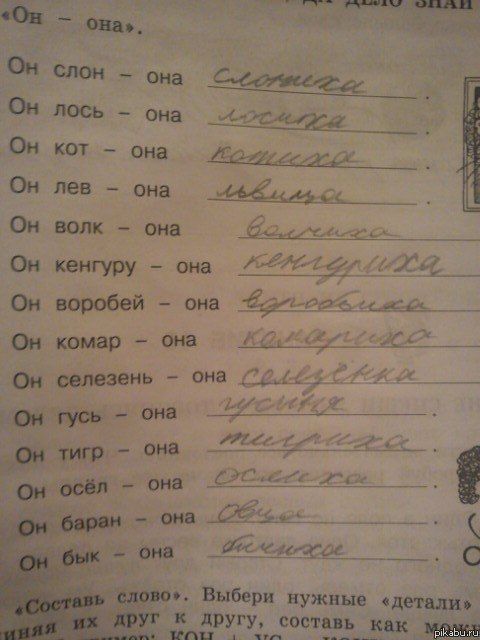 ДА ДЕЛО ЗНАЙ
«Он – она».
Он слон – она слониха.
Он лось – она лосиха.
Он кот – она котиха.
Он лев – она львица.
Он волк – она волчиха
Он кенгуру – она кенгуриха
Он воробей – она воробьиха
Он комар – она комариха
Он селезень – она селезёнка
Он гусь – она гусыня.
Он тигр – она тигриха.
Он осёл – она ослиха.
Он баран – она овца.
Он бык – она бичиха.
«Составь слово». Выбери нужные «детали»
иняя их друг к другу, составь как можн
КОН + УС
pikabu.ru